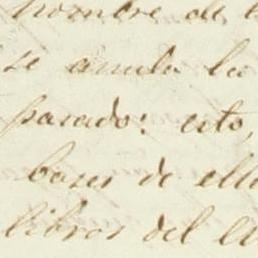 nombre de l
se anula la
pasado: esto,
bases de ella
libros del